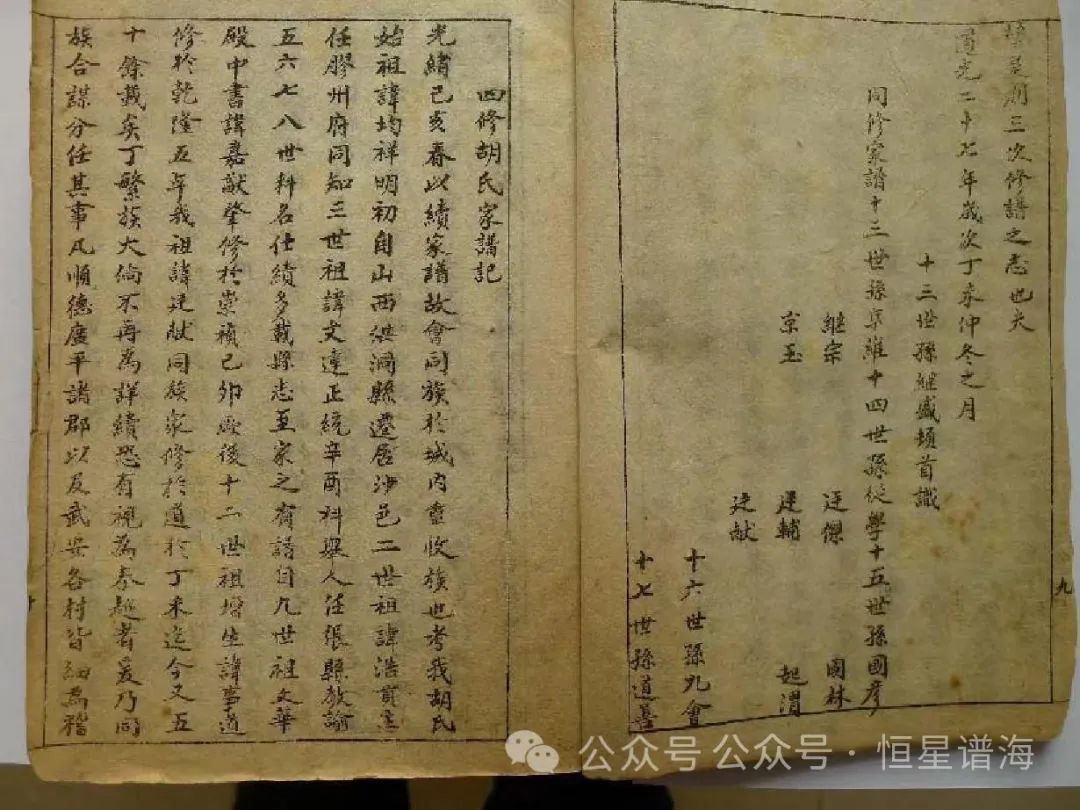 三次修譜之志也夫
道光二十七年歲次丁未仲冬之月
十三世孫継盛頓首識
同修家譜十三世孫阜維十四世孫從學十五世孫國彥
継宗 廷傑 國林
京玉 廷輔 起渭
廷献
十六世孫孔會
十七世孫道善
九
四修胡氏家譜記
光緒己亥春以續家譜故會同族於城内重收族也考我胡氏
始祖諱均祥明初自山西洪洞縣遷居沙邑二世祖諱浩貢生
任膠州府同知三世祖諱文達正統辛酉科舉人任張縣教諭
五六七八世科名仕績多載縣志至家之有譜自九世祖文華
殿中書諱嘉猷肇修於崇禎己卯厥後十二世祖增生諱事道
修於乾隆五年我祖諱廷献同族衆修於道於丁未迄今又五
十餘載矣丁繁族大倘不再為詳續恐有視為秦越者爰乃同
族合謀分任其事凡順德廣平諸郡以及武安各村皆細為稽
十
公众号 公众号·恒星谱海